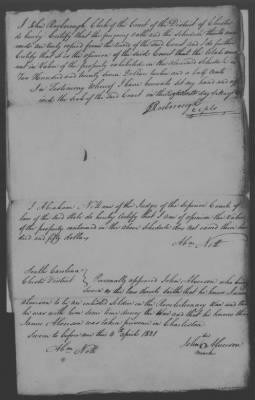 I John Rosborough Clerk of the Court of the District of Chester
do hereby Certify that the foregoing oath and the Schedule thereto
are truly copied from the records of the said Court and I do further
Certify that it is the opinion of the said Court that the total
amount in Value of the property exhibited in the aforesaid Schedule is
Two Hundred and twenty Seven Dollars twelve and a half Cents
In Testimony Whereof I have hereunto set my hand and
the Seal of the said Court on the day of
J Rosborough
I Abraham Nott one of the Judges of the Superior Courts of
law of the said State do hereby Certify that I am of opinion the Value
of the property contained in the above Schedule does not exceed three hundred
and fifty dollars
Abm Nott
South Carolina
Chester District
Personally appeared John Morrison who being
Sworn as the law directs Saith that he knows James
Morrison to be an enlisted Soldier in the Revolutionary War and that
he was with him some time during the War and that he knows that
James Morrison was taken prisoner in Charleston
Sworn to before me this 4 april 1821
Abm Nott
John Morrison
mark